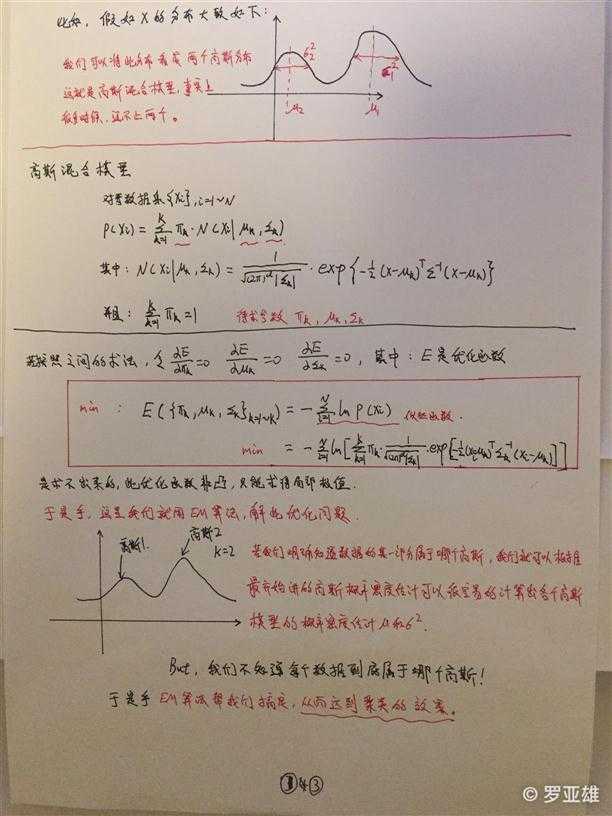 比如，假如X的分布大致如下：
我们可以将此分布看成两个高斯分布
这就是高斯混合模型，事实上
很多时候，还不止两个。
σ₂² σ₁²
μ₂ μ₁
高斯混合模型
对于数据集{xi}, i=1~N
P(xi) = Σ_{k=1}^{K} πk · N(xi | μk, Σk)
其中：N(xi | μk, Σk) = 1/√((2π)^d |Σk|) · exp{-½(x-μk)^T Σ^{-1}(x-μk)}
并且：Σ_{k=1}^{K} πk = 1 待求参数 πk, μk, Σk
若按照之间的求法，令 ∂E/∂πk=0 ∂E/∂μk=0 ∂E/∂Σk=0，其中：E是优化函数
min : E({πk, μk, Σk}k=1~K) = -Σ_{i=1}^{N} ln P(xi) 似然函数.
min = -Σ_{i=1}^{N} ln[Σ_{k=1}^{K} πk · 1/√((2π)^d |Σk|) · exp[-½(xi-μk)^T Σk^{-1}(xi-μk)]]
是求不出来的，此优化函数非凸，只能求得局部极值.
于是乎，这里我们就用EM算法，解此优化问题.
高斯1. 高斯2 K=2
若我们明确知道数据的某一部分属于哪个高斯，我们就可以根据
最开始讲的高斯概率密度估计可以很容易的计算出各个高斯
模型的概率密度估计μ和σ².
But，我们不知道每个数据到底属于哪个高斯！
于是乎EM算法帮我们搞定，从而达到聚类的效果。
③
© 罗亚雄